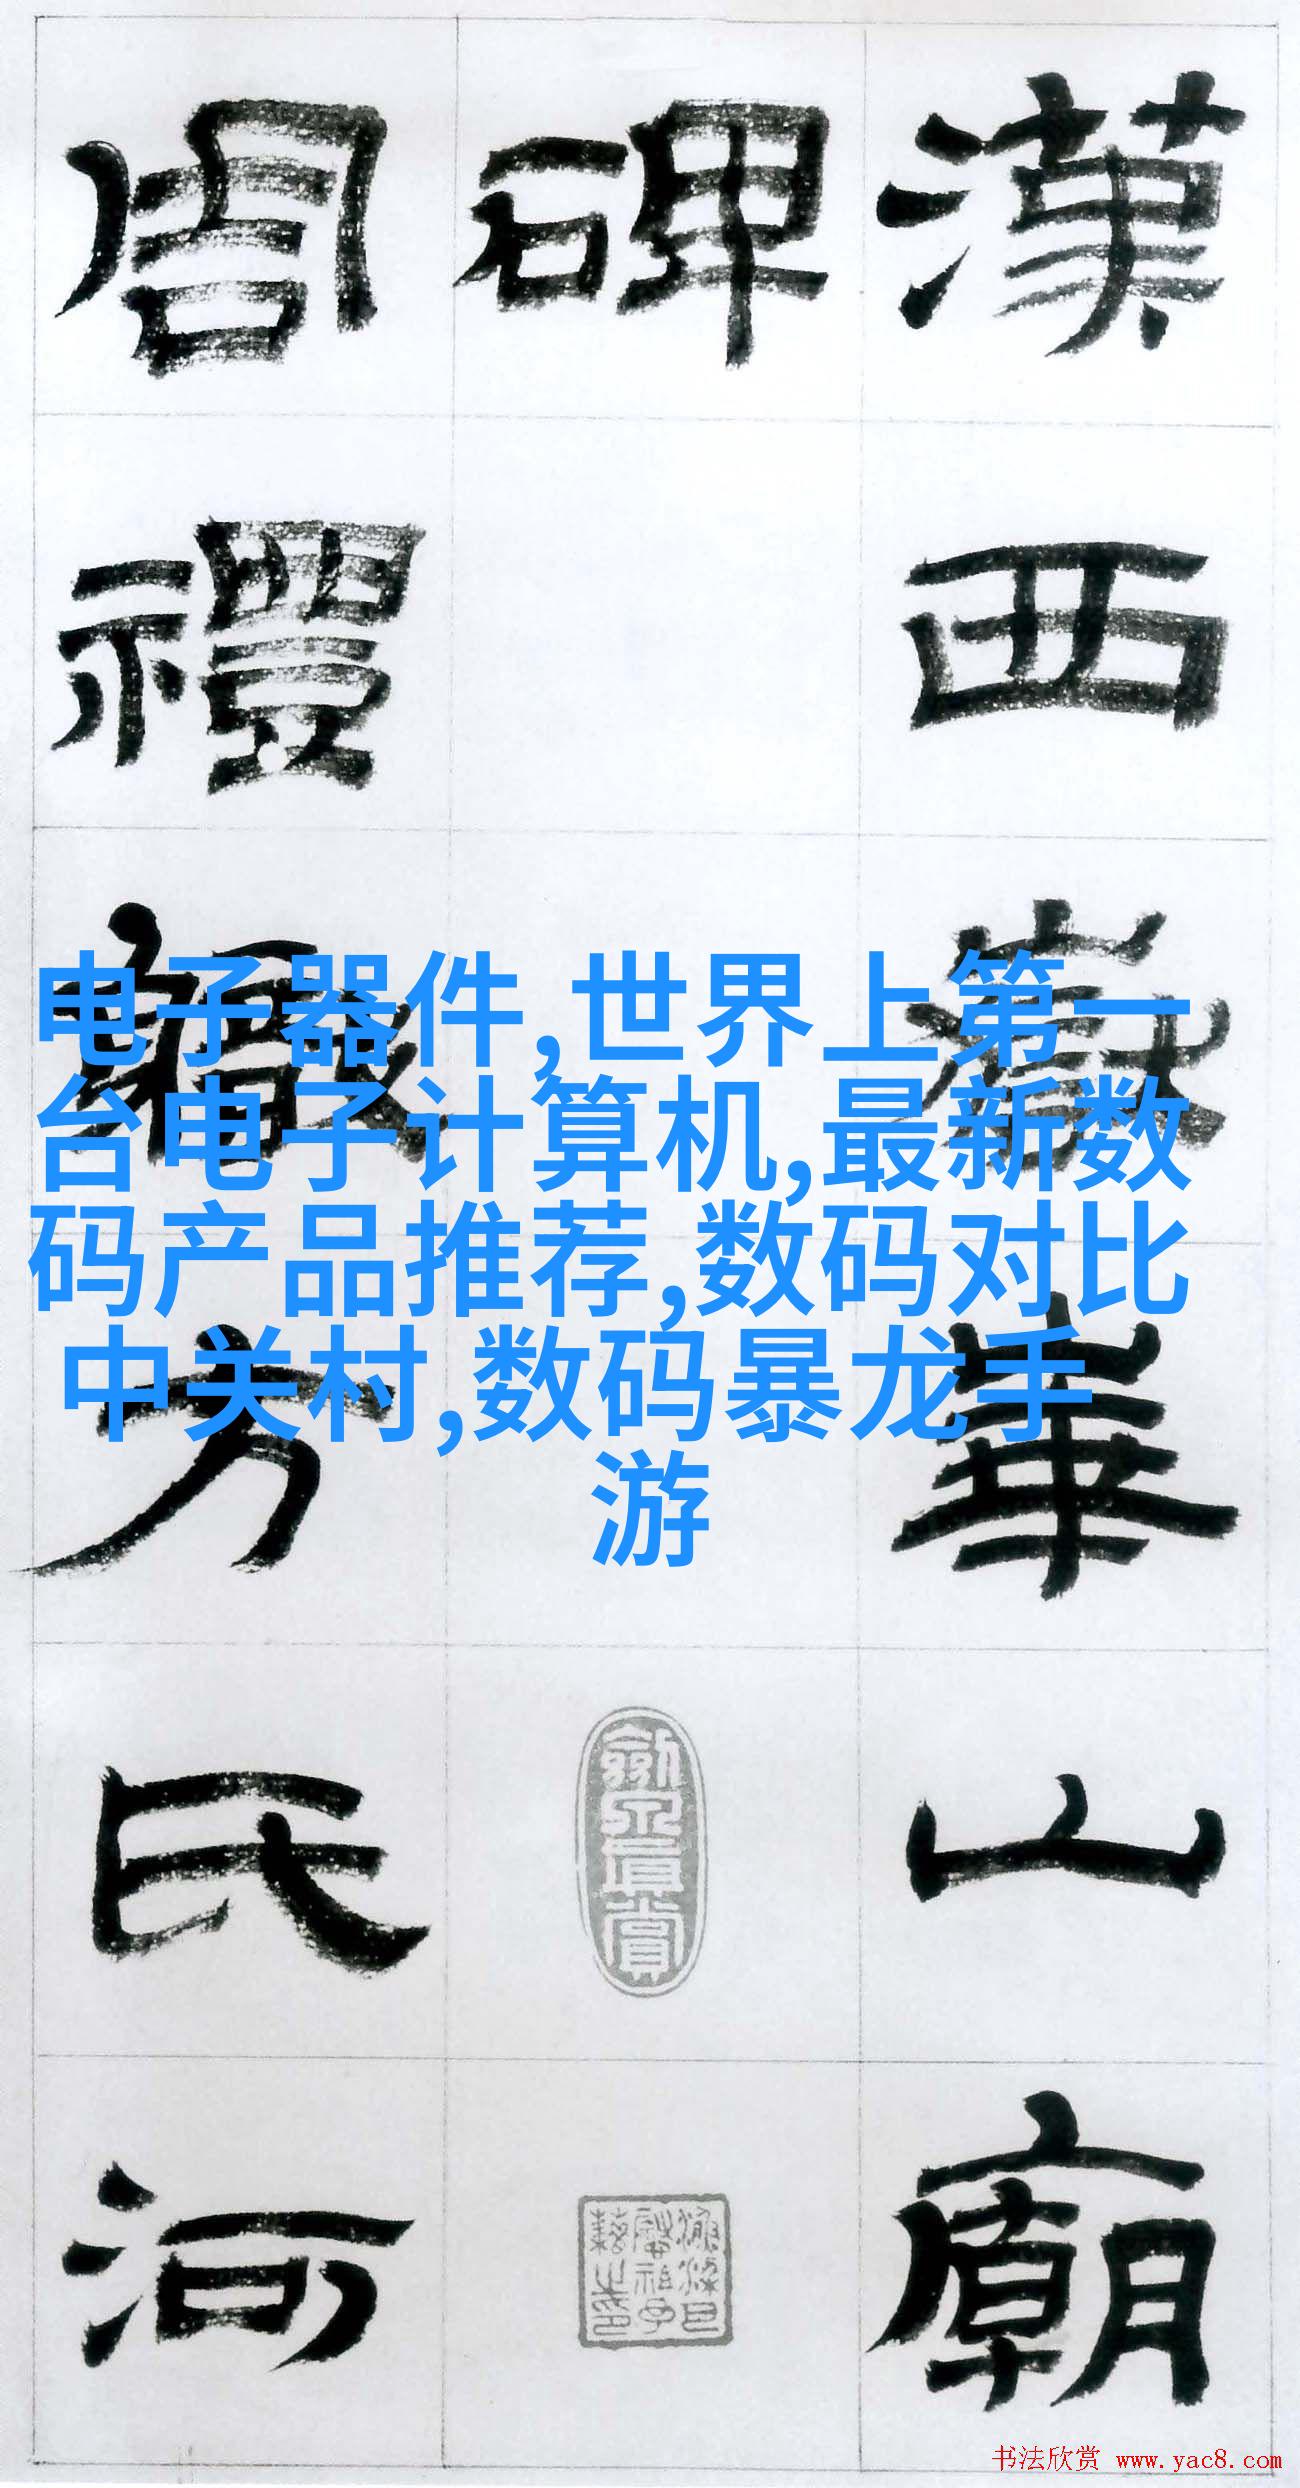 漢西嶽華山廟
碑
周禮職方氏河
电子器件,世界上第一
台电子计算机,最新数
码产品推荐,数码对比
中关村,数码暴龙手
游
书法欣赏 www.yac8.com